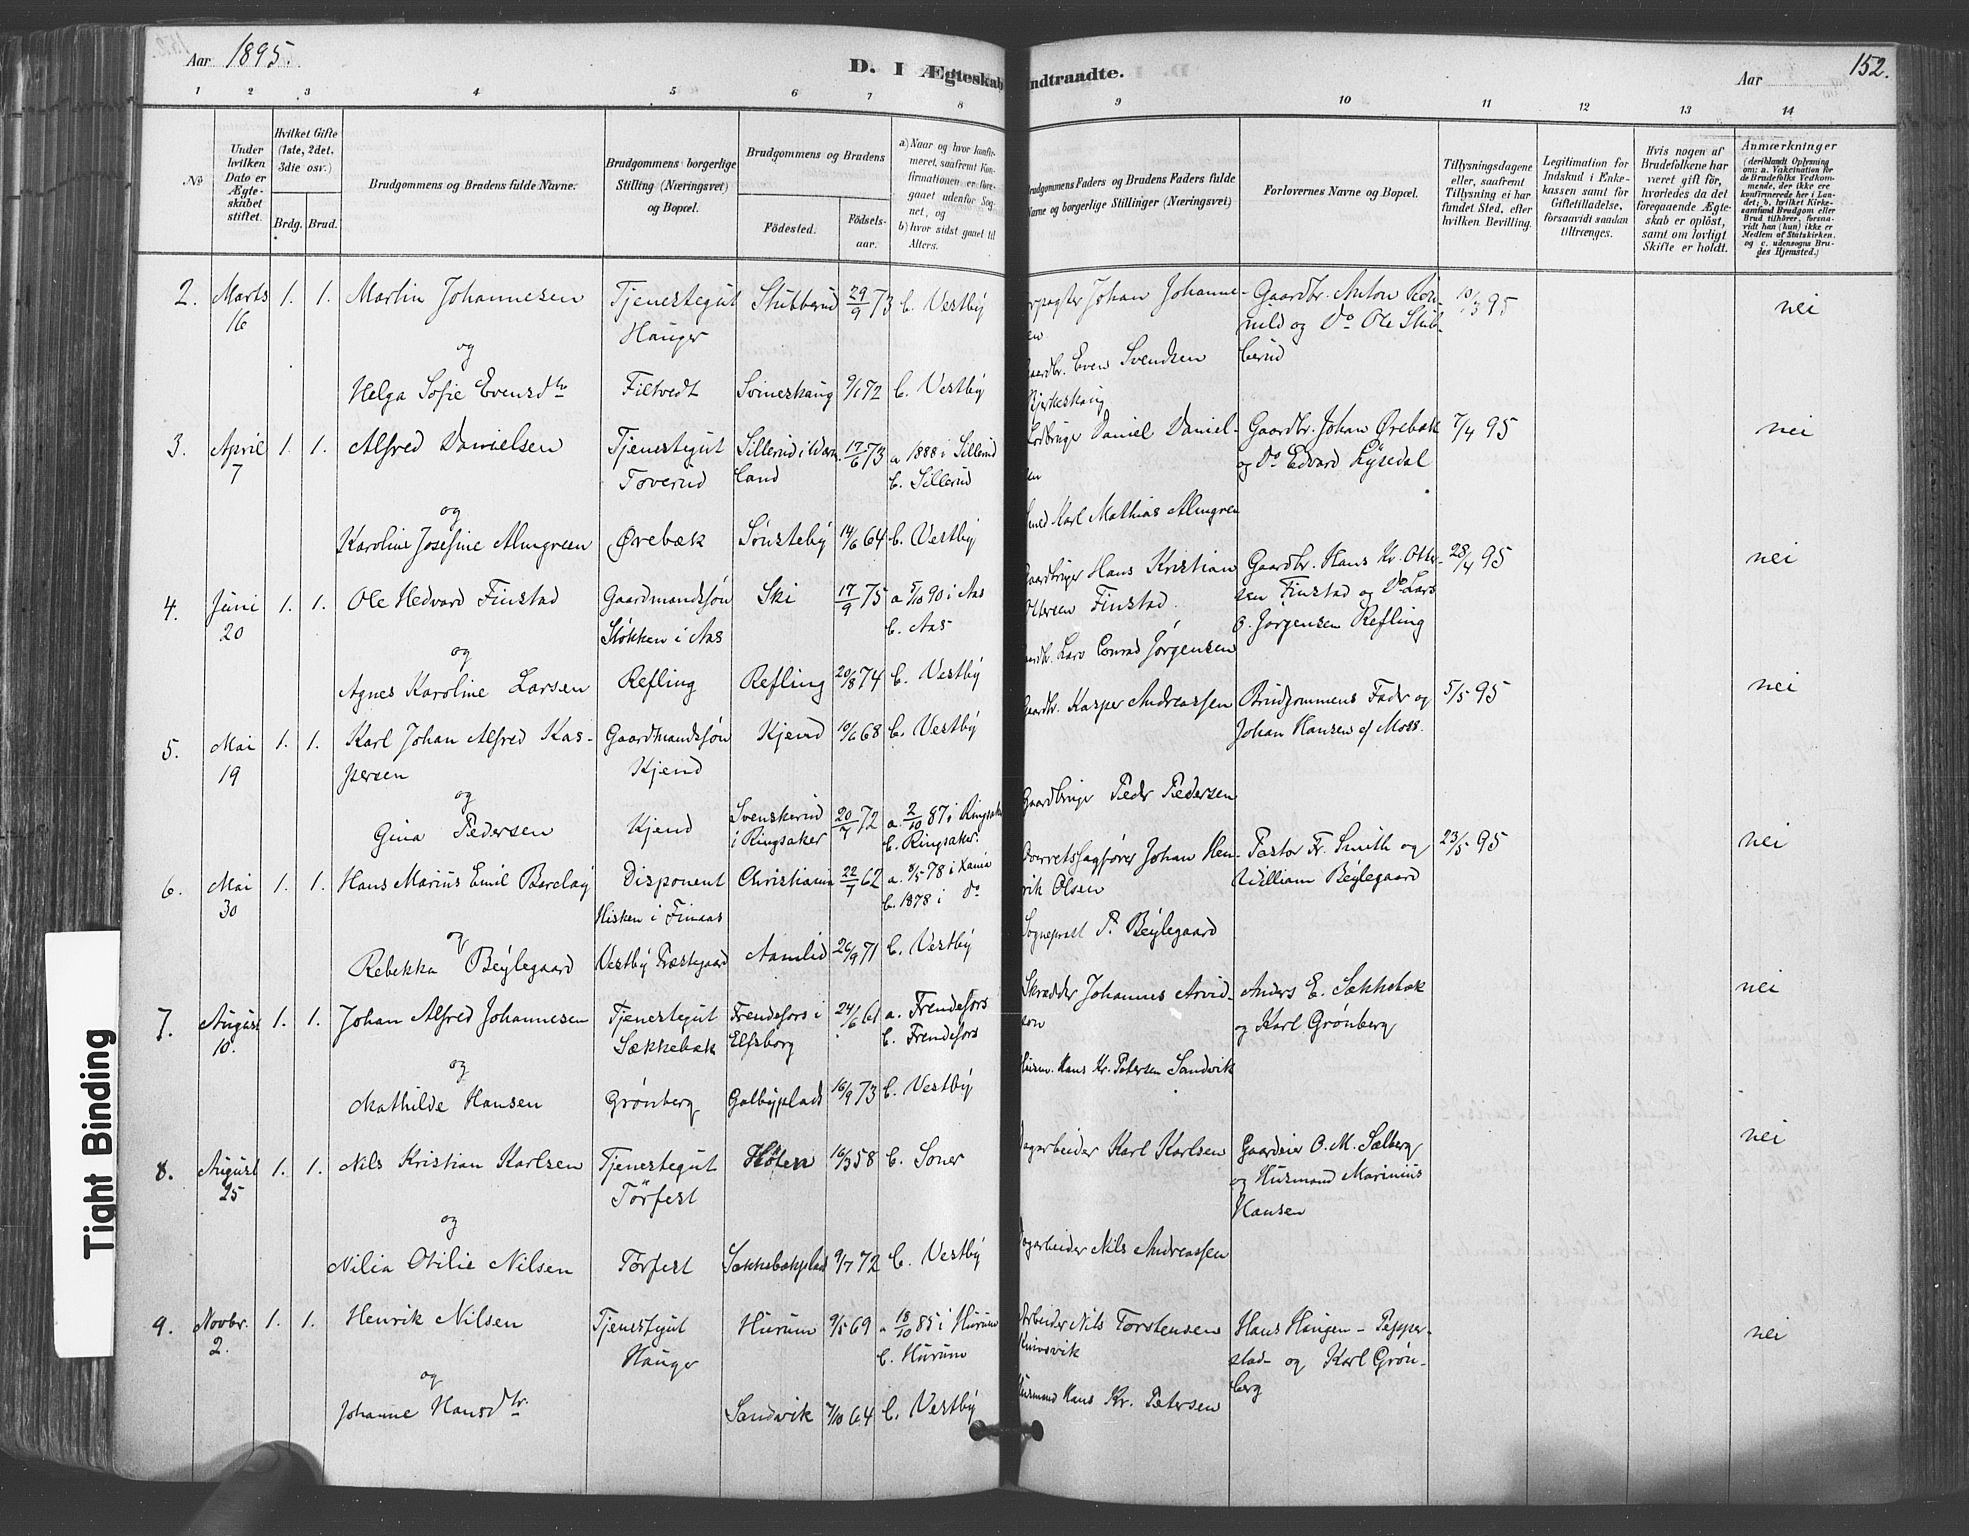 Aar 1895.
D. I Ægteskab
indtraadte.
Aar
152.
1 2 3 4 5 6 7 8 9 10 11 12 13 14
No
Under hvilken Dato er Ægteskabet stiftet.
Hvilket Gifte (1ste, 2det, 3die osv.)
Brdg. Brud.
Brudgommens og Brudens fulde Navne.
Brudgommens borgerlige Stilling (Næringsvei) og Bopæl.
Brudgommens og Brudens
Fødested.
Fødselsaar.
a) Naar og hvor konfirmeret, saafremt Konfirmationen er foregaaet udenfor Sognet, og
b) hvor sidst gaaet til Alters.
Brudgommens Faders og Brudens Faders fulde Navne og borgerlige Stillinger (Næringsvei)
Forlovernes Navne og Bopæl.
Tillysningsdagene eller, saafremt Tillysning ei har fundet Sted, efter hvilken Bevilling.
Legitimation for Indskud i Enkekassen samt for Giftetilladelse, forsaavidt saadan tiltrænges.
Hvis nogen af Brudefolkene har været gift før, hvorledes da det foregaaende Ægteskab er opløst, samt om lovligt Skifte er holdt.
Anmærkninger
(deriblandt Oplysning om: a. Vakcination for de Brudefolks Vedkommende, der ikke ere konfirmerede her i Landet; b. hvilket Kirkesamfund Brudgom eller Brud tilhører, forsaavidt han (hun) ikke er Medlem af Statskirken. og c. udensogns Brudes Hjemsted.)
2. Marts 16 1. 1. Martin Johannesen
Tjenestegut Hauger
Stubberud 29/9 73 b. Vestby
Johan Johannesen
Gaardbr. Anton
og Do Ole Stubberud
10/3 95
nei
og
Helga Sofie Evensdtr
Filtvedt
Svineskaug 9/1 72 b. Vestby
Gaardbr. Even Svendsen
Bjerkeskaug
3. April 7 1. 1. Alfred Danielsen
Tjenestegut Toverud
Sillerud i Wermland 17/6 73 a 1888 i Sillerud
b. Sillerud
Daniel Danielsen
Gaardbr. Johan Ørebæk
og Do Edvard Lysedal
7/4 95
nei
og
Karoline Josefine Almgreen
Ørebæk
Sønsteby 14/6 64 b. Vestby
Smed Karl Mathias Almgren
4. Juni 20 1. 1. Ole Hedvard Finstad
Gaardmandssøn
Støkken i Aas
Ski 17/9 75 a 5/10 90 i Aas
b. Aas
Gaardbruger Hans Kristian
Ottersen Finstad.
Gaardbr. Hans Kr. Ottersen Finstad og Do Lars
O. Jørgensen Refling
28/4 95
nei
og
Agnes Karoline Larsen
Refling
Refling 20/8 74 b. Vestby
Gaardbr. Lars Conrad Jørgensen
5. Mai 19 1. 1. Karl Johan Alfred Kaspersen
Gaardmandssøn
Kjend
Kjend 10/6 68 b. Vestby
Gaardbr. Kasper Andreassen
Brudgommens Fader og
Johan Hansen af Moss.
5/5 95
nei
og
Gina Pedersen
Kjend
Svenskerud i Ringsaker 20/7 72 a. 2/10 87 i Ringsaker
b. Ringsaker.
Gaardbruger Peder Pedersen
6. Mai 30 1. 1. Hans Marius Emil Barclay
Disponent
Hisken i Finaas
Christiania 22/1 62 a. 8/5 78 i Xania
b. 1878 i Do
Overretssagfører Johan Henrik Olsen
Pastor Fr. Smith og
William Beylegaard
23/5 95
nei
og
Rebekka Beylegaard
Vestby Præstegaard
Aamlid 26/9 71 b. Vestby
Sogneprest P. Beylegaard
7. August 10. 1. 1. Johan Alfred Johannesen
Tjenestegut
Sækkebæk
Frendefors i Elfsborg 24/6 61 a. Frendefors
b. Frendefors
Skrædder Johannes Arvidson
Anders E. Sækkebæk
og Karl Grønberg
nei
og
Mathilde Hansen
Grønberg
Galbyplads 16/9 73 b. Vestby
Husm. Hans Kr. Petersen Sandvik
8. August 25 1. 1. Nils Kristian Karlsen
Tjenestegut
Tørfest
Høten 16/3 58 b. Soner
Dagarbeider Karl Karlsen
Gaardeier O. M. Sælberg
og Husmand Marinius
Hansen
nei
og
Nilia Otilie Nilsen
Tørfest
Sækkebækplads 9/7 72 b. Vestby
Dagarbeider Nils Andreassen
9. Novbr. 2. 1. 1. Henrik Nilsen
Tjenestgut
Hauger
Hurum 9/5 69 a 18/10 85 i Hurum
b. Hurum
Arbeider Nils Torstensen
Knivsvik
Hans Haugen - Pepperstad og Karl Grønberg
nei
og
Johanne Hansdtr.
Sandvik 7/10 64 b. Vestby
Husmand Hans Kr. Petersen
Tight Binding